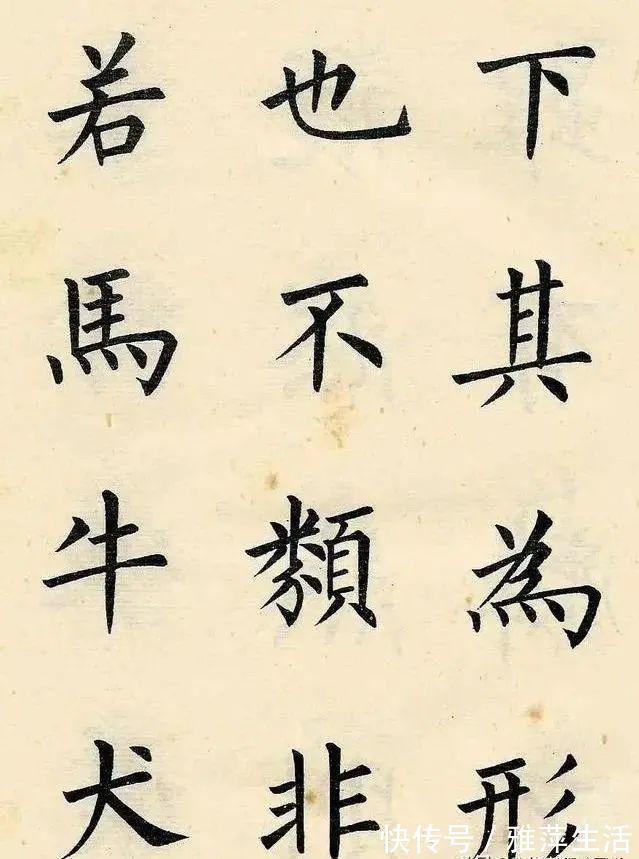 下其為形
也不類非
若馬牛犬
快传号/雅萍生活